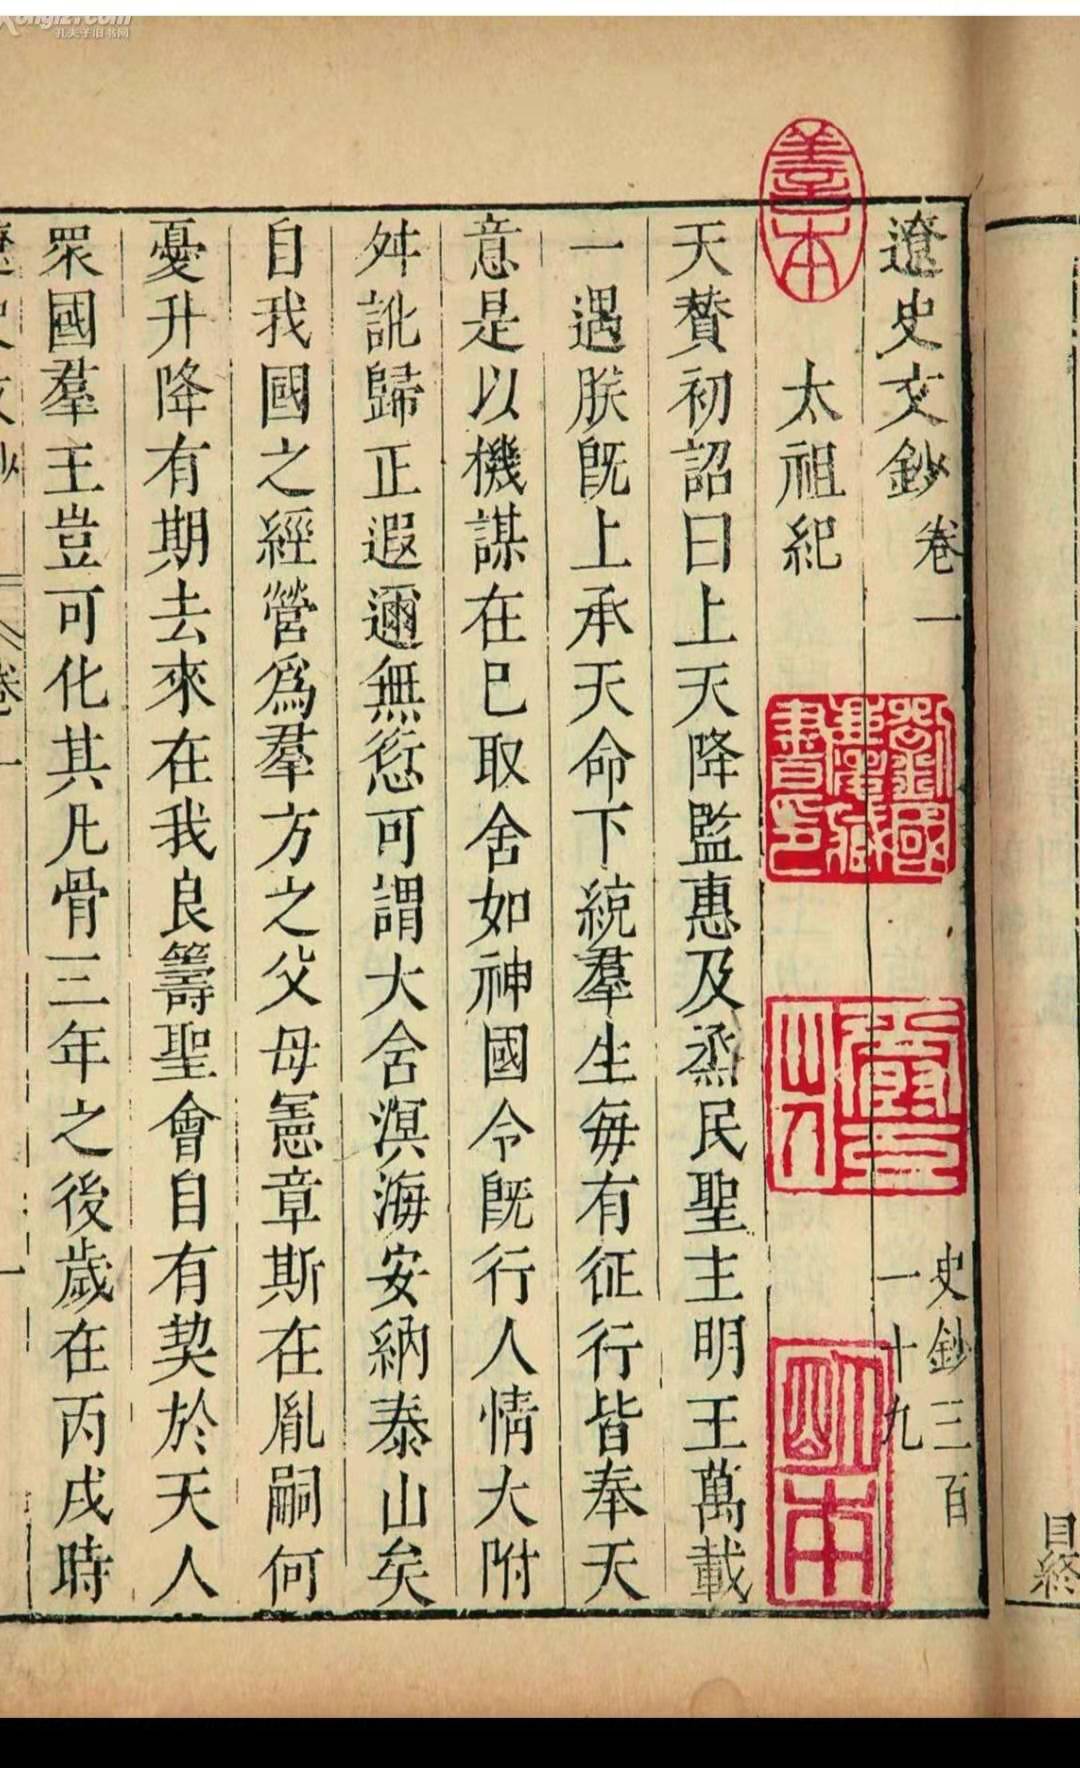 遼史文鈔卷一
史鈔三百
一十九
太祖紀
天贊初詔曰上天降監惠及烝民聖主明王萬載
一遇朕旣上承天命下統羣生每有征行皆奉天
意是以機謀在己取舍如神國令旣行人情大附
舛訛歸正遐邇無愆可謂大含溟海安納泰山矣
自我國之經營爲羣方之父母憲章斯在胤嗣何
憂升降有期去來在我良籌聖會自有契於天人
眾國羣王豈可化其凡骨三年之後歲在丙戌時
目終
善本
劉國
書印
明本
孔夫子旧书网